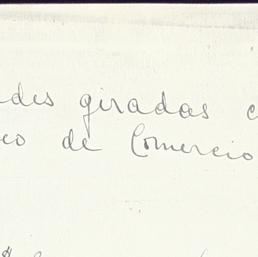 des giradas c
co de Comercio